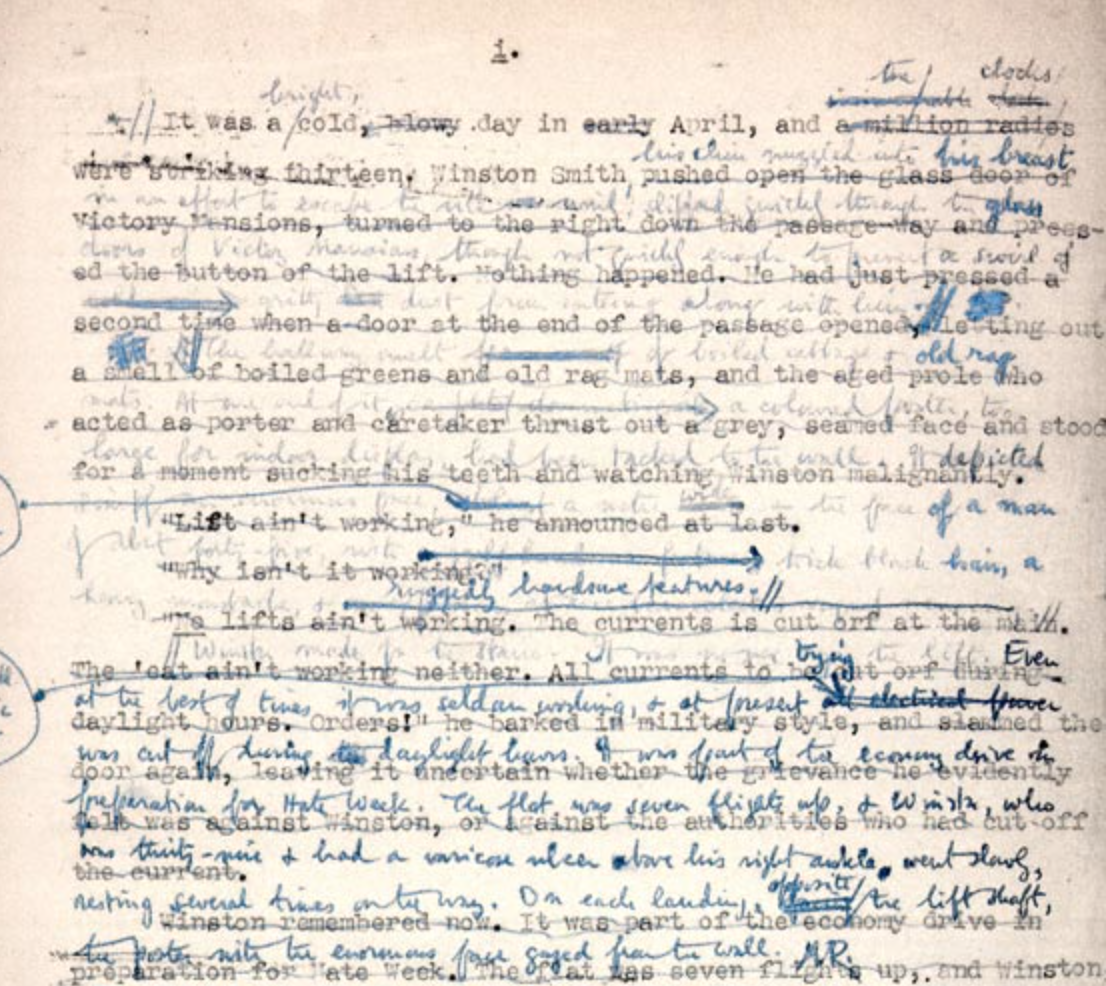 i.
the clocks
bright,
It was a cold, blowy day in early April, and a million radios
his chin nuzzled into his breast
were striking thirteen. Winston Smith pushed open the glass door of
in an effort to escape the vile wind, slipped quickly through the glass
Victory Mansions, turned to the right down the passage-way and press-
doors of Victory Mansions, though not quickly enough to prevent a swirl of
ed the button of the lift. Nothing happened. He had just pressed a
gritty dust from entering along with him. //
second time when a door at the end of the passage opened, letting out
// The hallway smelt of boiled cabbage & old rag
a smell of boiled greens and old rag mats, and the aged prole who
mats. At one end of it a coloured poster, too
acted as porter and caretaker thrust out a grey, seamed face and stood
large for indoor display, had been tacked to the wall. It depicted
for a moment sucking his teeth and watching Winston malignantly.
simply an enormous face, a metre wide the face of a man
"Lift ain't working," he announced at last.
of about forty-five, with thick black hair, a
"Why isn't it working?"
heavy moustache, ruggedly handsome features. //
"No lifts ain't working. The currents is cut orf at the main.
// Winston made for the stairs. It was no use trying the lift. Even
The 'eat ain't working neither. All currents to be cut orf during
at the best of times it was seldom working, & at present electrical power
daylight hours. Orders!" he barked in military style, and slammed the
was cut off during daylight hours. It was part of the economy drive in
door again, leaving it uncertain whether the grievance he evidently
preparation for Hate Week. The flat was seven flights up, & Winston, who
felt was against Winston, or against the authorities who had cut off
was thirty-nine & had a varicose ulcer above his right ankle, went slowly,
the current.
resting several times on the way. On each landing, opposite the lift shaft,
Winston remembered now. It was part of the economy drive in
the poster with the enormous face gazed from the wall.
preparation for Hate Week. The flat was seven flights up, and Winston